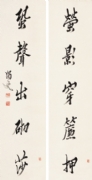 螢影穿簾押
蛩聲出砌莎